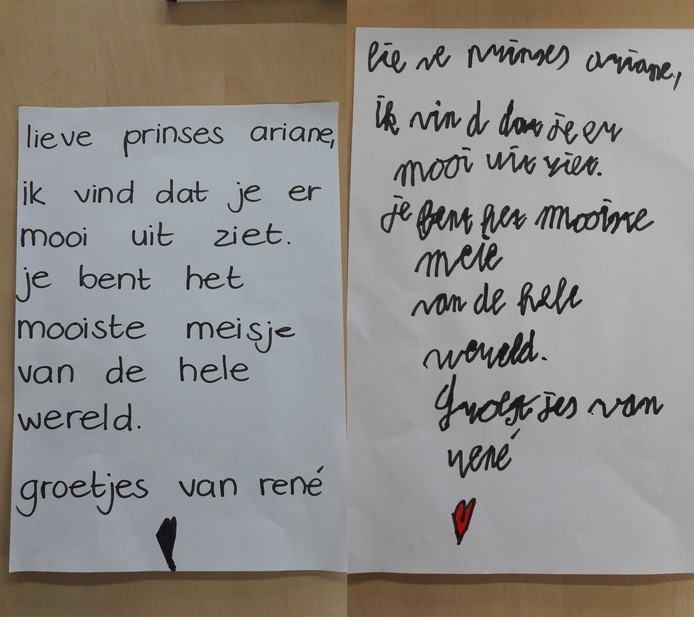 lieve prinses ariane,
ik vind dat je er
mooi uit ziet.
je bent het
mooiste meisje
van de hele
wereld.
groetjes van rené
lie ve prinses ariane,
ik vin d dat je er
mooi uit ziet.
je bent het mooiste
meie
van de hele
wereld.
Groetjes van
rené